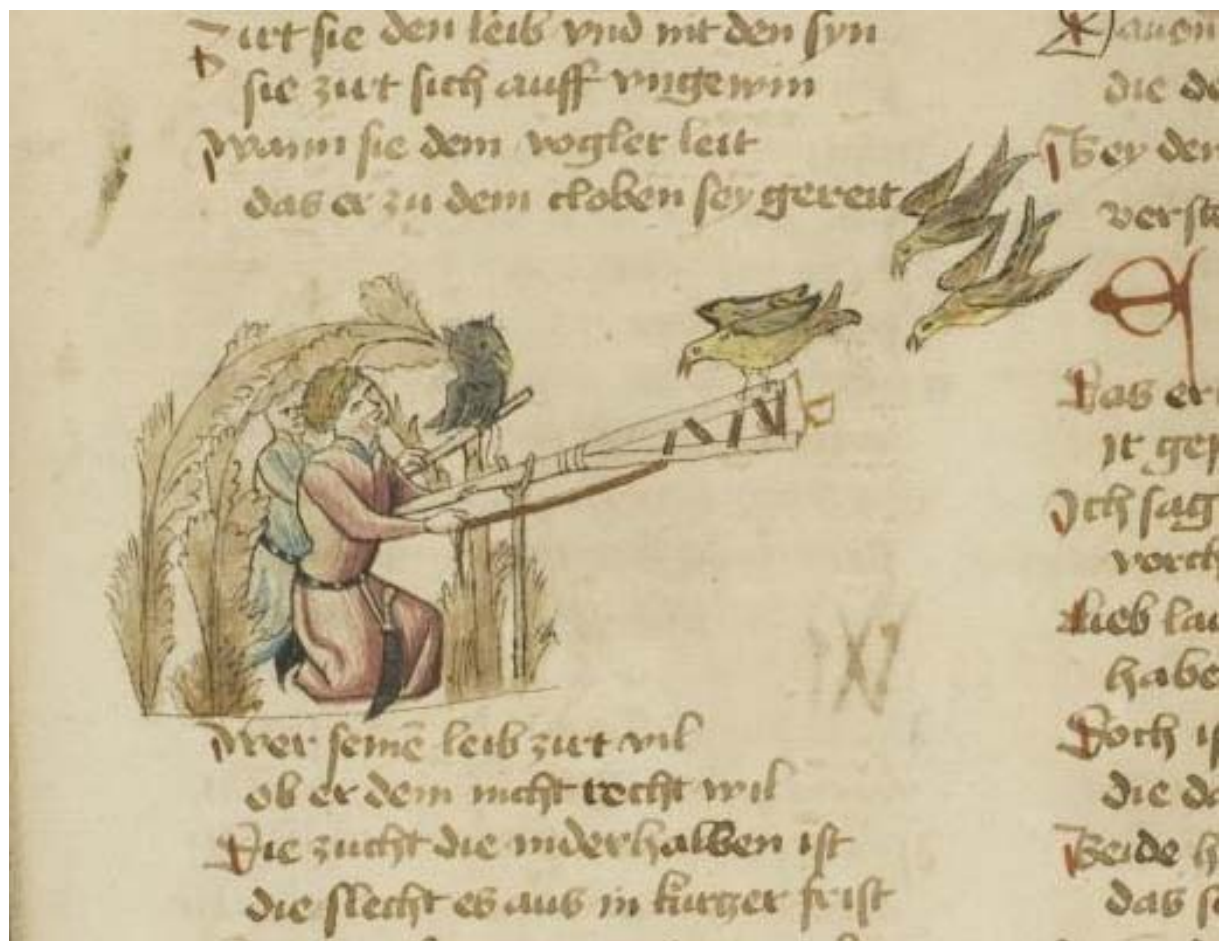 Zirt sie den leib vnd nit den syn
sie zirt sich auff vngewin
Wann sie dem vogler leit
das er zu dem cloben sey gereit
Wer seinē leib zirt vil
ob er dem nicht recht wil
Die zucht die inderhalben ist
die slecht es aus in kurczer frist
die
Bey der
verste
Das er
ir
Ich sag
vorch
Lieb
habe
Doch
die
Beide
das